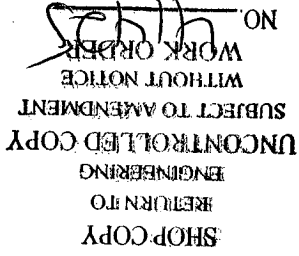 SHOP COPY
RETURN TO
ENGINEERING
UNCONTROLLED COPY
SUBJECT TO AMENDMENT
WITHOUT NOTICE
WORK ORDER
NO.